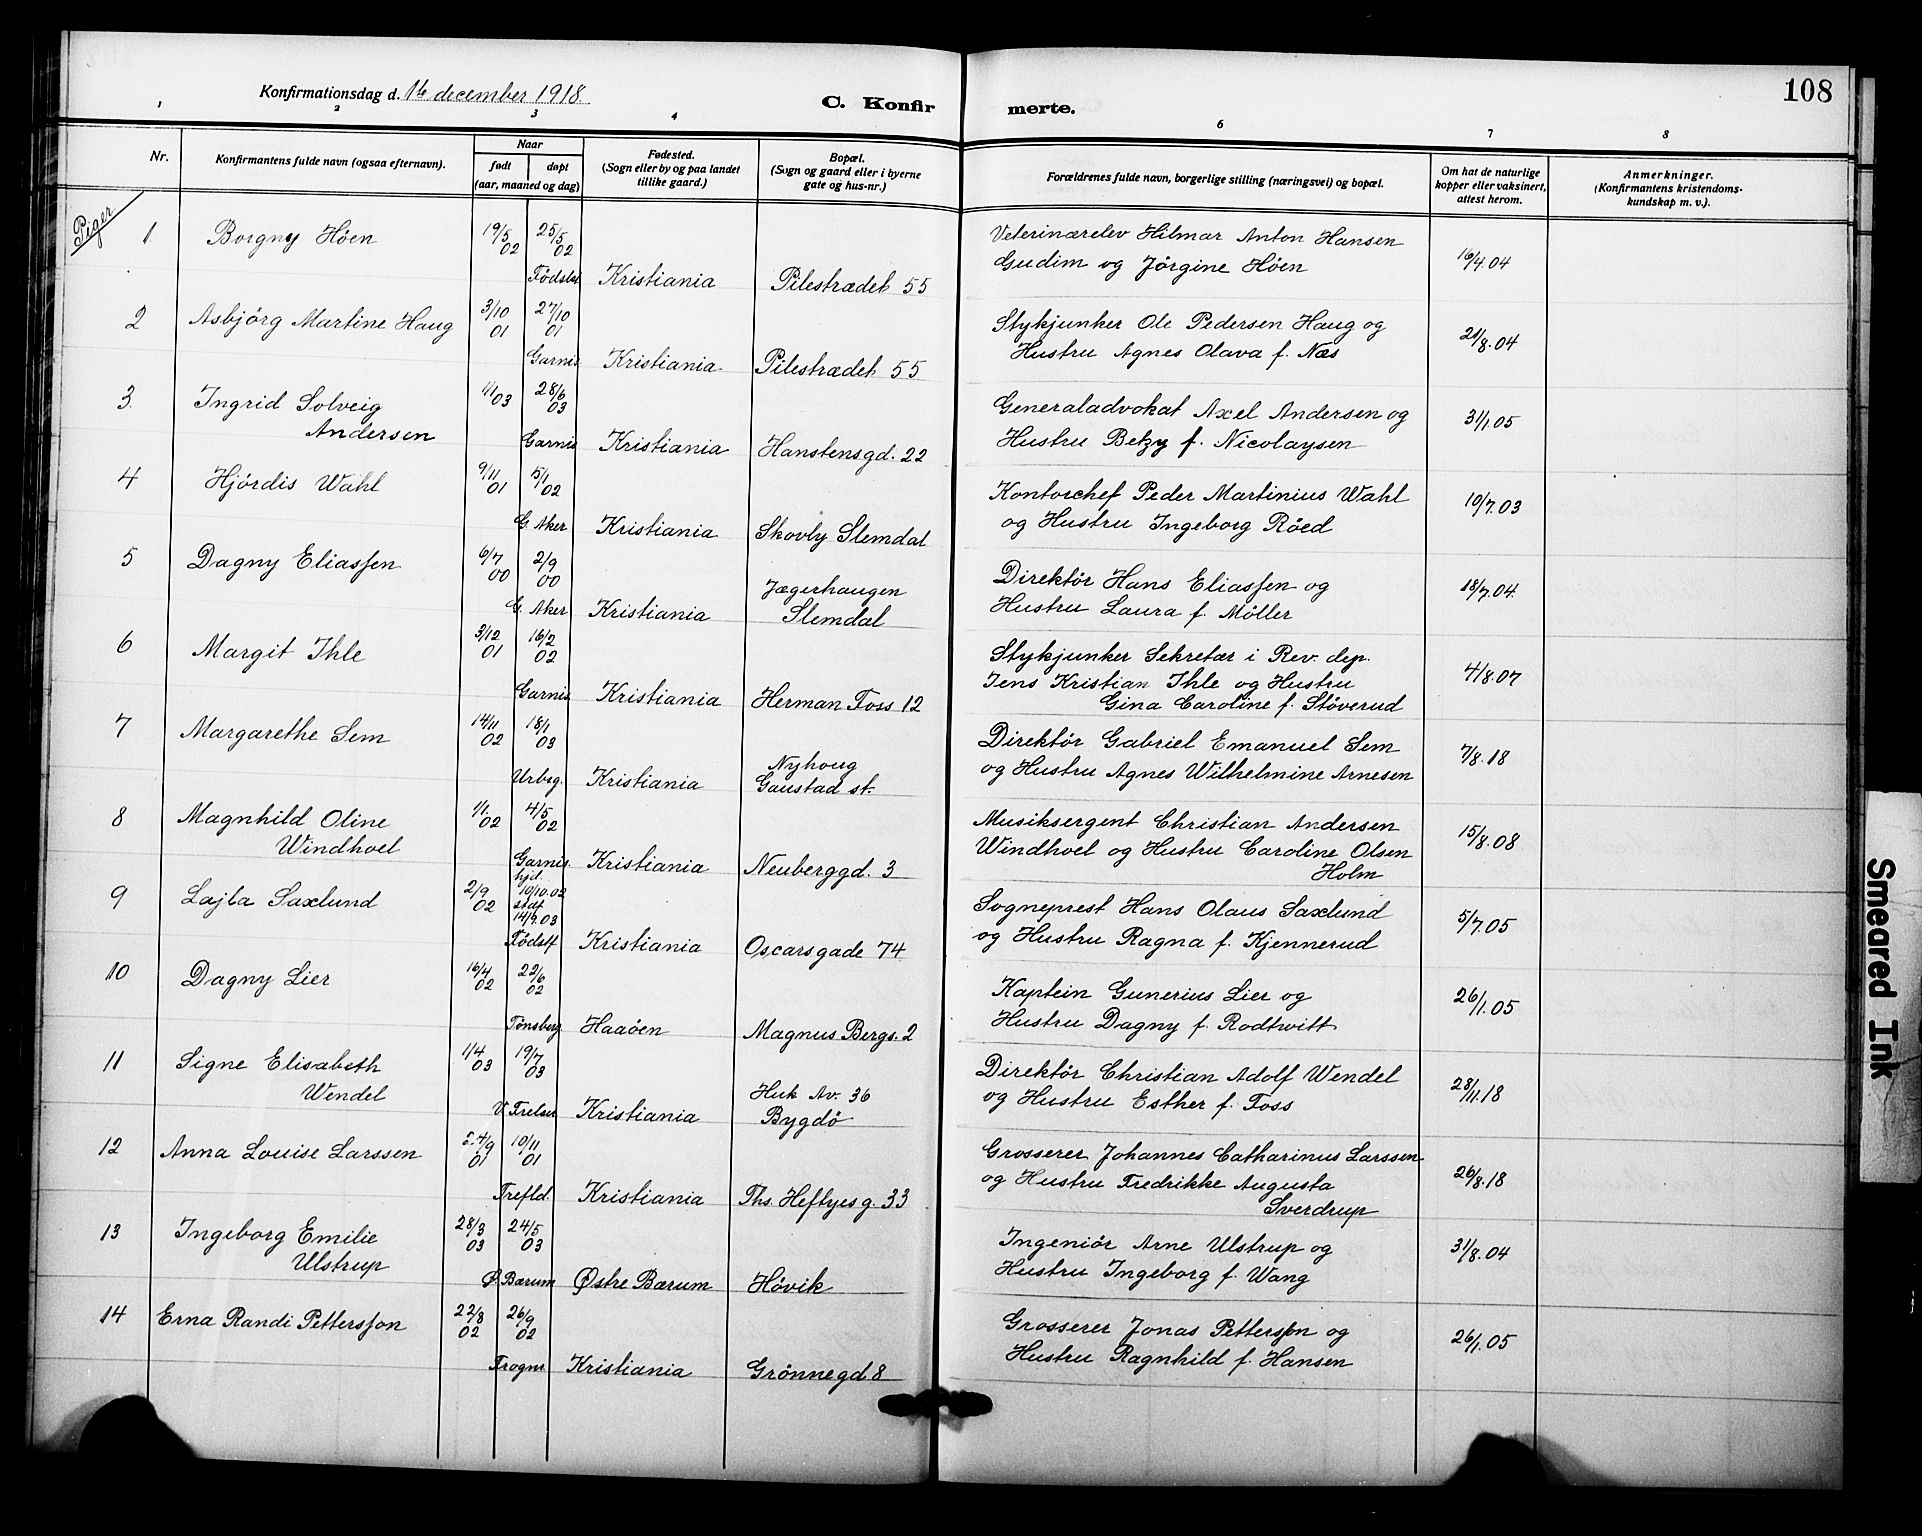 108
Konfirmationsdag d. 16 december 1918.
C. Konfir merte.
1 2 3 4 6 7 8
Nr.
Konfirmantens fulde navn (ogsaa efternavn).
Naar
født døpt
(aar, maaned og dag)
Fødested.
(Sogn eller by og paa landet
tillike gaard.)
Bopæl.
(Sogn og gaard eller i byerne
gate og hus-nr.)
Forældrenes fulde navn, borgerlige stilling (næringsvei) og bopæl.
Om hat de naturlige
kopper eller vaksinert,
attest herom.
Anmerkninger.
(Konfirmantens kristendoms-
kundskap m. v.).
Piger.
1 Borgny Höen 19/5 02 25/5 02 Veterinærelev Hilmar Anton Hansen
Födselst Kristiania Pilestrædet 55 Gudim og Jörgine Höen 16/4.04
2 Asbjörg Martine Haug 3/10 01 27/10 01 Stykjunker Ole Pedersen Haug og
Garnis. Kristiania. Pilestrædet 55 Hustru Agnes Olava f. Næs 21/8.04
3. Ingrid Solveig 1/1 03 28/6 03 Generaladvokat Axel Andersen og
Andersen Garnis Kristiania Hanstensgd. 22 Hustru Betzy f. Nicolaysen 31/1.05
4 Hjördis Wahl 9/11 01 5/1 02 Kontorchef Peder Martinius Wahl
G. Aker Kristiania Skovly Slemdal og Hustru Ingeborg Röed 10/7.03
5 Dagny Eliassen 6/7 00 2/9 00 Jægerhaugen Direktör Hans Eliassen og
G. Aker Kristiania Slemdal Hustru Laura f. Möller 18/7.04.
6 Margit Ihle 3/12 01 16/2 02 Stykjunker Sekretær i Rev. dep.
Jens Kristian Ihle og Hustru 4/8.07
Garnis Kristiania Herman Foss 12 Gina Caroline f. Stöverud
7 Margarethe Sem 14/11 02 18/1 03 Nyhoug Direktör Gabriel Emanuel Sem
Urbsg. Kristiania Gaustad st. og Hustru Agnes Wilhelmine Arnesen 7/8.18
8 Magnhild Oline 1/1. 02 4/5 02 Musiksergent Christian Andersen
Windhoel Garnis. Kristiania Neuberggd. 3 Windhoel og Hustru Caroline Olsen 15/8.08
Holm
9 Lajla Saxlund 2/9 02 hjd. 10/10.02 staf 14/9.03 Sogneprest Hans Olaus Saxlund
Födstf. Kristiania Oscarsgade 74 og Hustru Ragna f. Kjennerud 5/7.05
10 Dagny Lier 16/4 02 22/6 02 Kaptein Gunerius Lier og
Tönsberg Haaöen Magnus Bergs. 2 Hustru Dagny f. Rodtwitt 26/1.05
11 Signe Elisabeth 1/4 03 19/7 03 Huk Av. 36 Direktör Christian Adolf Wendel
Wendel V. Frelser Kristiania Bygdö og Hustru Esther f. Foss 28/11.18
12 Anna Louise Larssen 24/9 01 10/11 01 Grosserer Johannes Catharinus Larssen
Trefld. Kristiania Ths. Heftyesg. 33 og Hustru Fredrikke Augusta 26/8.18
Sverdrup
13 Ingeborg Emilie 28/3 03 24/5 03 Ingeniör Arne Ulstrup og
Ulstrup Ø. Bærum Østre Bærum Hövik Hustru Ingeborg f. Wang 31/8.04
14 Erna Randi Petterssen 22/8 02 26/9 02 Grosserer Jonas Petterssen og
Frogner Kristiania Grönnegd 8 Hustru Ragnhild f. Hansen 26/1.05
Smeared Ink